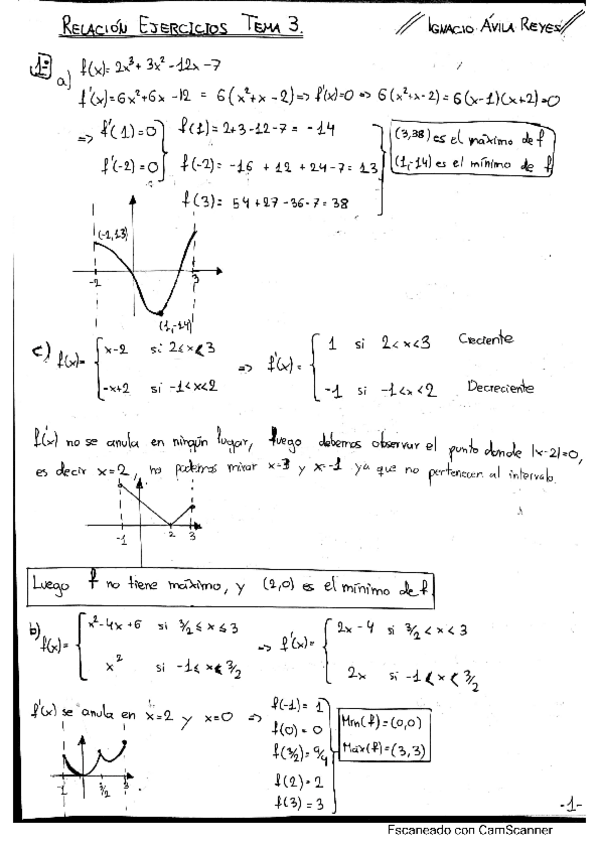 RELACIÓN EJERCICIOS TEMA 3. // IGNACIO ÁVILA REYES //
1º a) f(x)= 2x³+3x²-12x-7
f'(x)=6x²+6x-12 = 6(x²+x-2) => f'(x)=0 => 6(x²+x-2)=6(x-1)(x+2)=0
=> f'(1)=0 f(1)=2+3-12-7=-14
f'(-2)=0 f(-2)=-16+12+24-7=13
f(3)=54+27-36-7=38
(3,38) es el máximo de f
(1,-14) es el mínimo de f
(-2,13)
-2 3
(1,-14)
c) f(x)= x-2 si 2≤x<3 => f'(x)= 1 si 2<x<3 Creciente
-x+2 si -1<x<2 -1 si -1<x<2 Decreciente
f'(x) no se anula en ningún lugar, luego debemos observar el punto donde |x-2|=0,
es decir x=2, no podemos mirar x=3 y x=-1 ya que no pertenecen al intervalo.
-1 2 3
Luego f no tiene máximo, y (2,0) es el mínimo de f.
b) f(x)= x²-4x+6 si 3/2≤x≤3 => f'(x)= 2x-4 si 3/2<x<3
x² si -1≤x<3/2 2x si -1<x<3/2
f'(x) se anula en x=2 y x=0 => f(-1)=1
f(0)=0
f(3/2)=9/4
f(2)=2
f(3)=3
Min(f)=(0,0)
Max(f)=(3,3)
-1 3/2 3
-1-
Escaneado con CamScanner